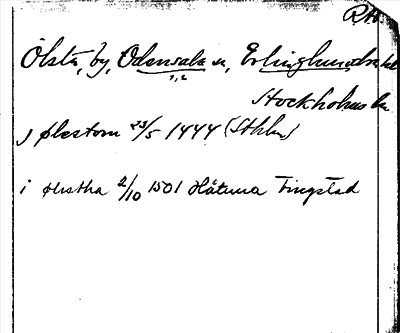 RA.
Ölsta, by, Odensala sn, Erlinghundra hd
1,2
Stockholms län
j ølestom 23/5 1444 (Sthlm)
i ølistha 2/10 1501 Håtuna Tingstad